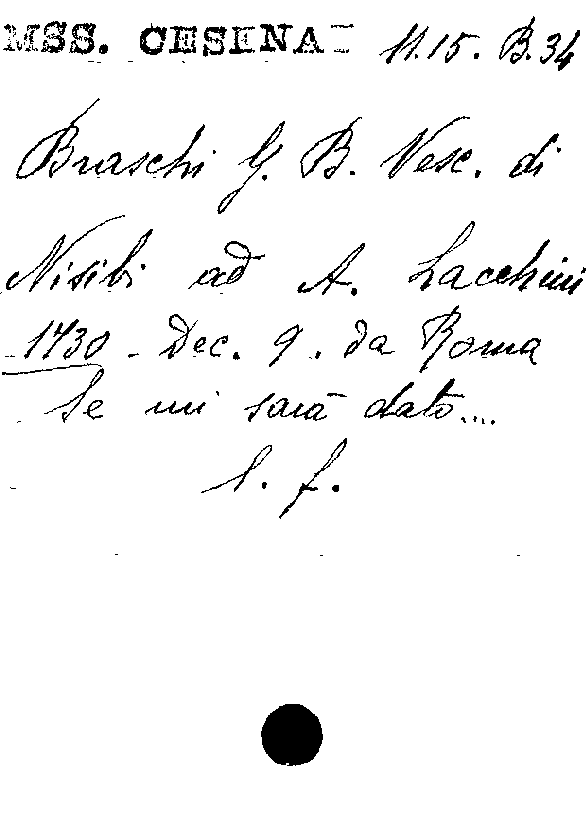 MSS. CESENA 11.15. B.34
Braschi G. B. Vesc. di
Nisibi ad A. Lacchini
1730 - Dec. 9. da Roma
Se mi sarà dato...
l. f.